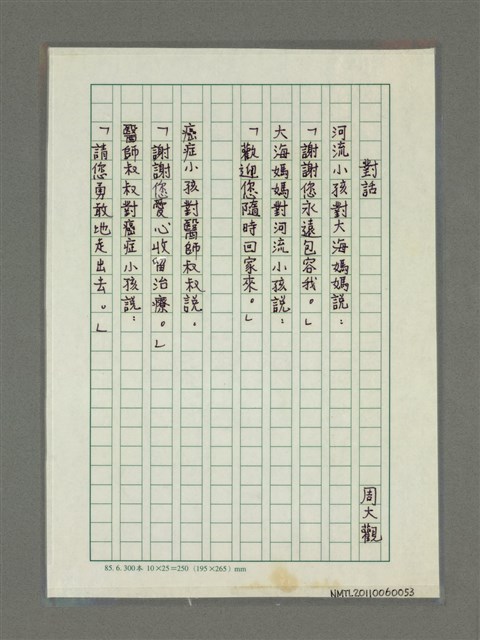 對話 周大觀
河流小孩對大海媽媽說：
「謝謝您永遠包容我。」
大海媽媽對河流小孩說：
「歡迎您隨時回家來。」
癌症小孩對醫師叔叔說：
「謝謝您愛心收留治療。」
醫師叔叔對癌症小孩說：
「請您勇敢地走出去。」
85. 6. 300本 10×25=250 (195×265) mm
NMTL20110060053